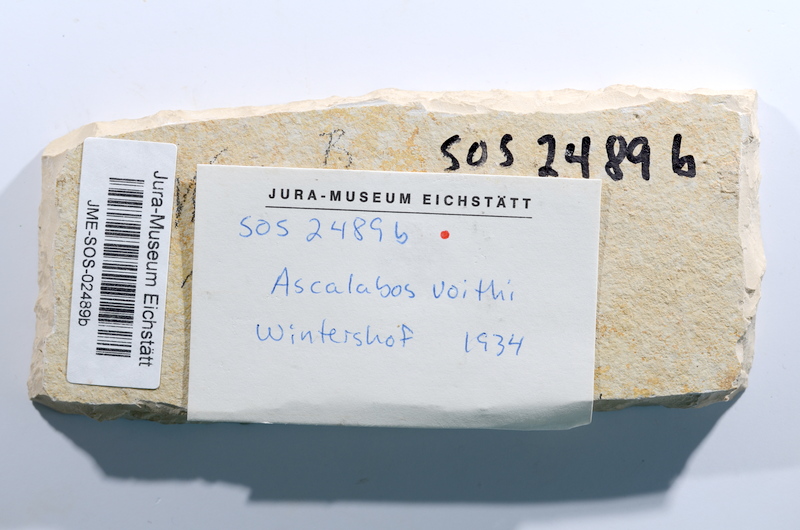 SOS 2489 b
B
JURA-MUSEUM EICHSTÄTT
SOS 2489 b
Ascalabos voithi
Wintershof 1934
Jura-Museum Eichstätt
JME-SOS-02489b